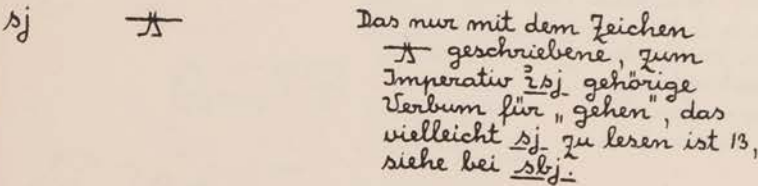 sj 𓊃𓂻 Das nur mit dem Zeichen
𓊃𓂻 geschriebene, zum
Imperativ ꞽsj gehörige
Verbum für „gehen", das
vielleicht sj zu lesen ist 13,
siehe bei sbj.